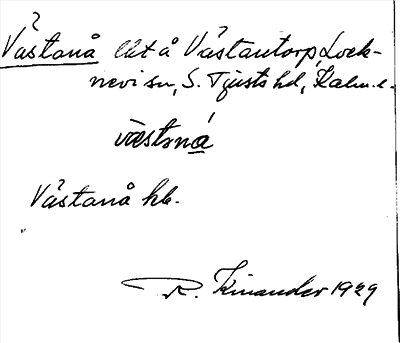 ?
Västanå lht å Västantorp, Lock-
nevi sn, S. Tjusts hd, Kalm. l.
västná
Västanå hb.
R. Kinander 1929